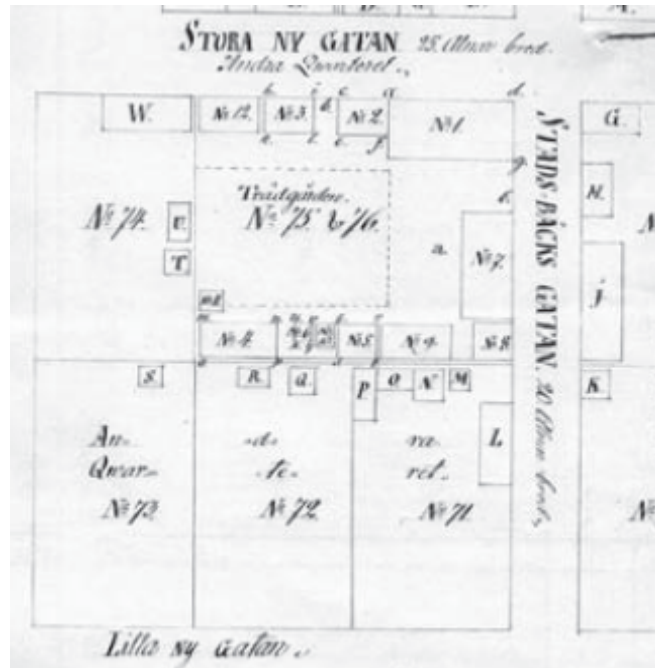 STORA NY GATAN 25. Alnar bred.
Andra Quarteret.
W.
No 12.
No 3.
No 2.
No 1.
G.
Trädgården.
No 75. & 76.
No 74.
U.
T
a.
No 7.
H.
j
STADS-BÄCKS GATAN. 20 Alnar bred.
No 4.
No 5.
No 9.
No 8.
S.
R.
Q.
P
O.
N.
M
K
L
An- -d- ra-
Qwar- -te- ret.
No 73.
No 72.
No 71.
Lilla ny Gatan.